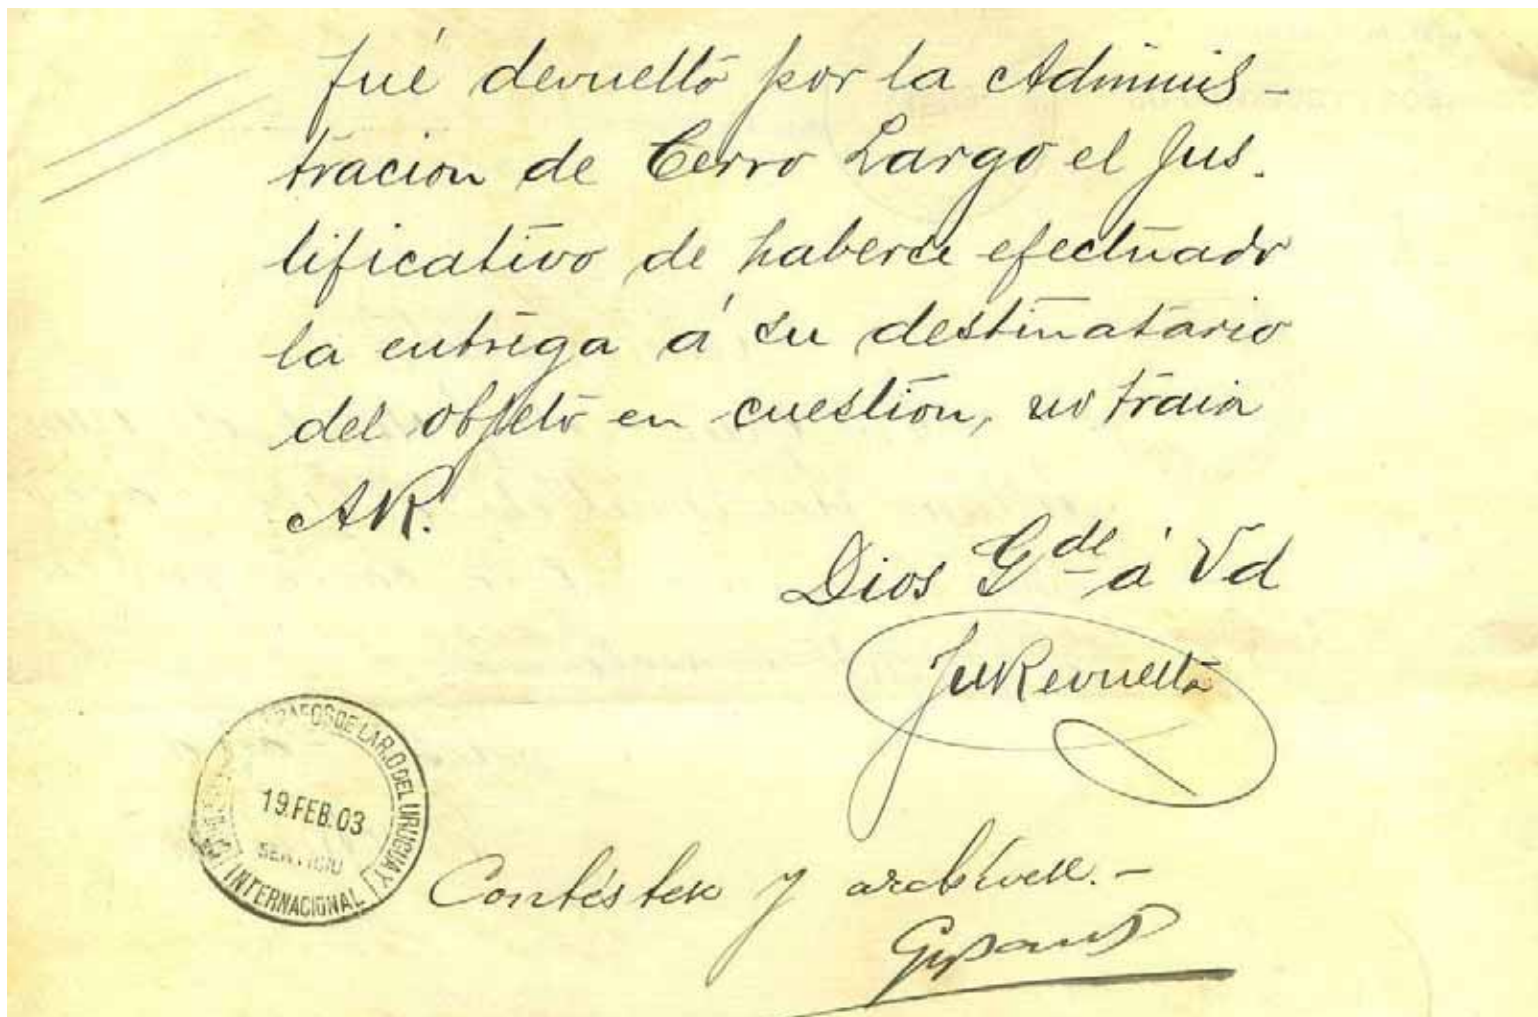 fué devuelto por la Adminis-
tracion de Cerro Largo el jus.
tificativo de haberse efectuado
la entrega á su destinatario
del objeto en cuestión, no traia
AR.
Dios Gde á Vd
Revuelta
DE LA R.O DEL URUGUAY
19.FEB.03
SERVICIO
INTERNACIONAL
Contéstese y archívese.-